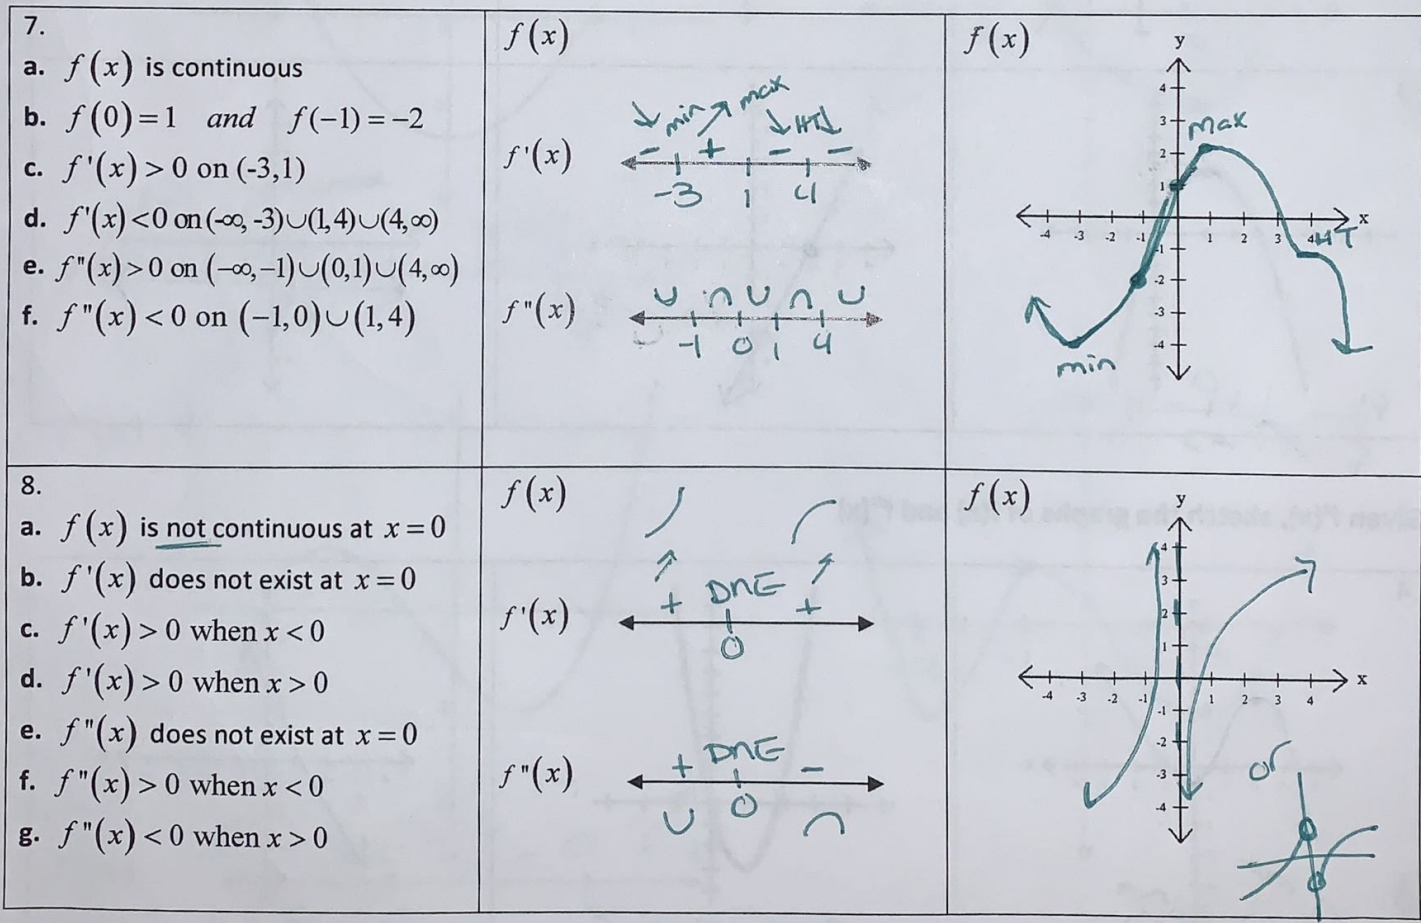 7.
a. f(x) is continuous
b. f(0)=1 and f(-1)=-2
c. f'(x)>0 on (-3,1)
d. f'(x)<0 on (-∞,-3)∪(1,4)∪(4,∞)
e. f"(x)>0 on (-∞,-1)∪(0,1)∪(4,∞)
f. f"(x)<0 on (-1,0)∪(1,4)
f(x)
↓ min ↗ max ↓ HT ↓
f'(x) - + - -
-3 1 4
∪ ∩ ∪ ∩ ∪
f"(x)
-1 0 1 4
f(x)
y
4
3 max
2
1
-4 -3 -2 -1 1 2 3 4 HT x
-1
-2
-3
-4
min
8.
a. f(x) is not continuous at x=0
b. f'(x) does not exist at x=0
c. f'(x)>0 when x<0
d. f'(x)>0 when x>0
e. f"(x) does not exist at x=0
f. f"(x)>0 when x<0
g. f"(x)<0 when x>0
f(x)
↗ ↗
f'(x) + DNE +
0
f"(x) + DNE -
0
∪ ∩
f(x)
y
4
3
2
1
-4 -3 -2 -1 1 2 3 4 x
-1
-2
-3
-4
or